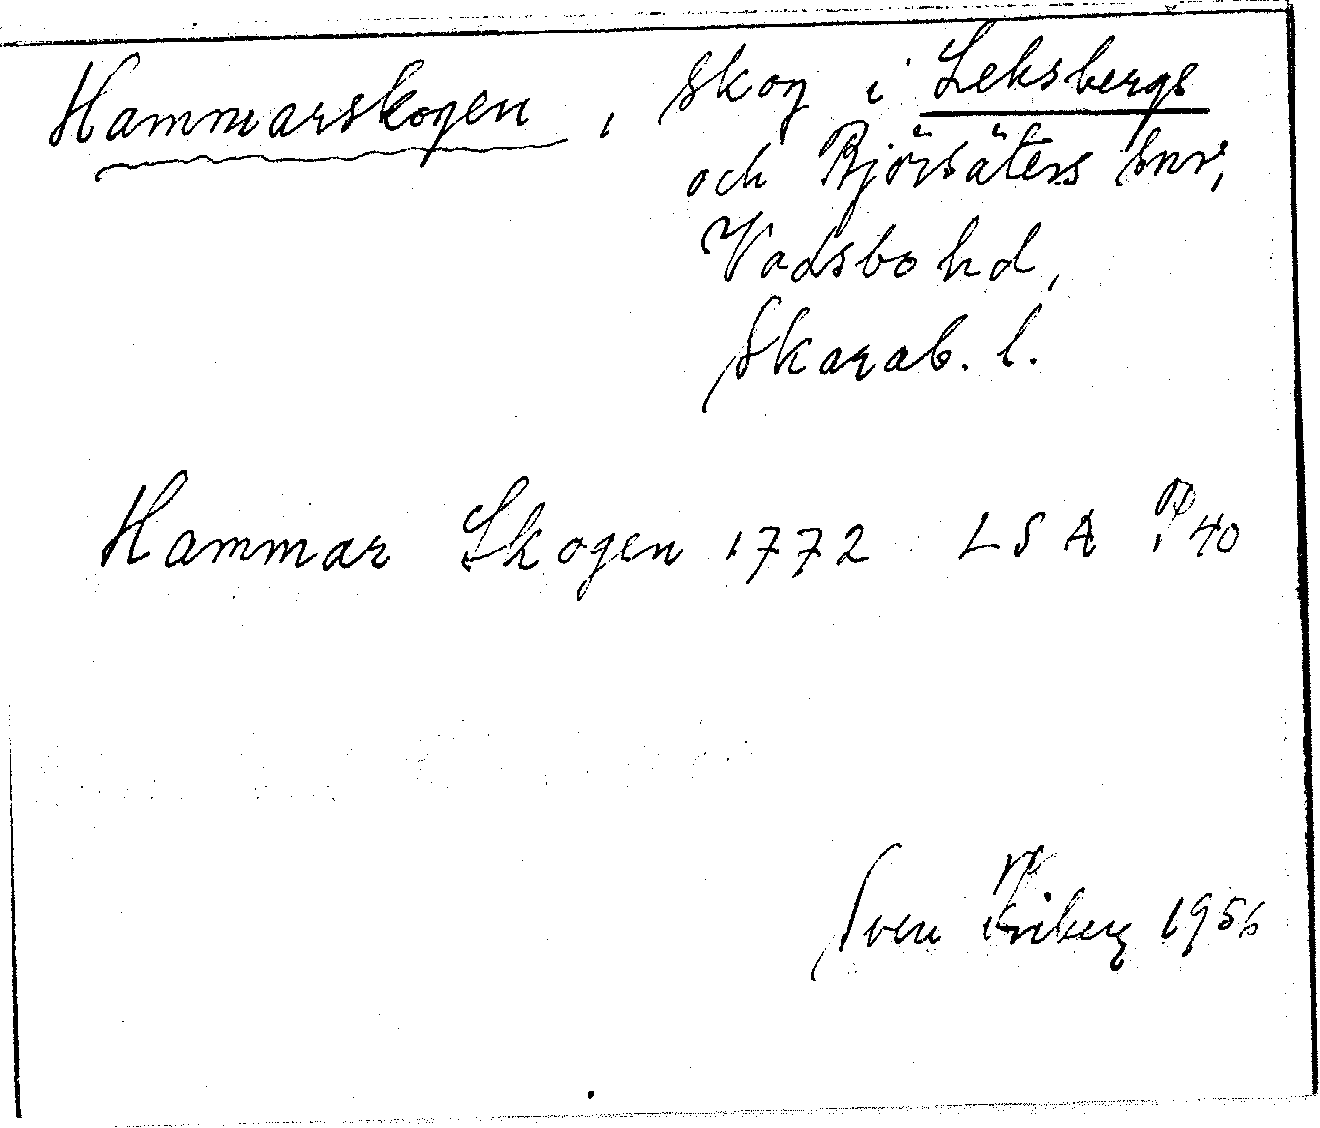 Hammarskogen, skog i Leksbergs
och Björsäters snr,
Vadsbo hd,
Skarab. l.
Hammar Skogen 1772 LSA P40
Sven Friberg 1956